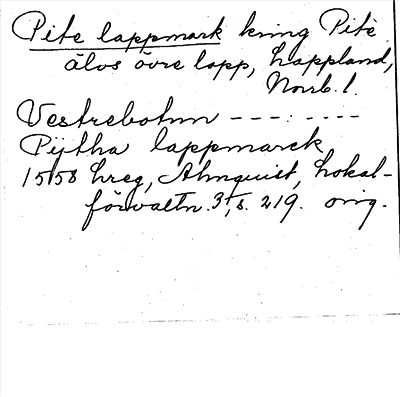 Pite lappmark kring Pite
älvs övre lopp, Lappland,
Norrb. l.
Vestrebotnn --- : ----
Pijtha lappmarck
1558 hreg, Almquist, Lokal-
förvaltn. 3:1, s. 219. orig.